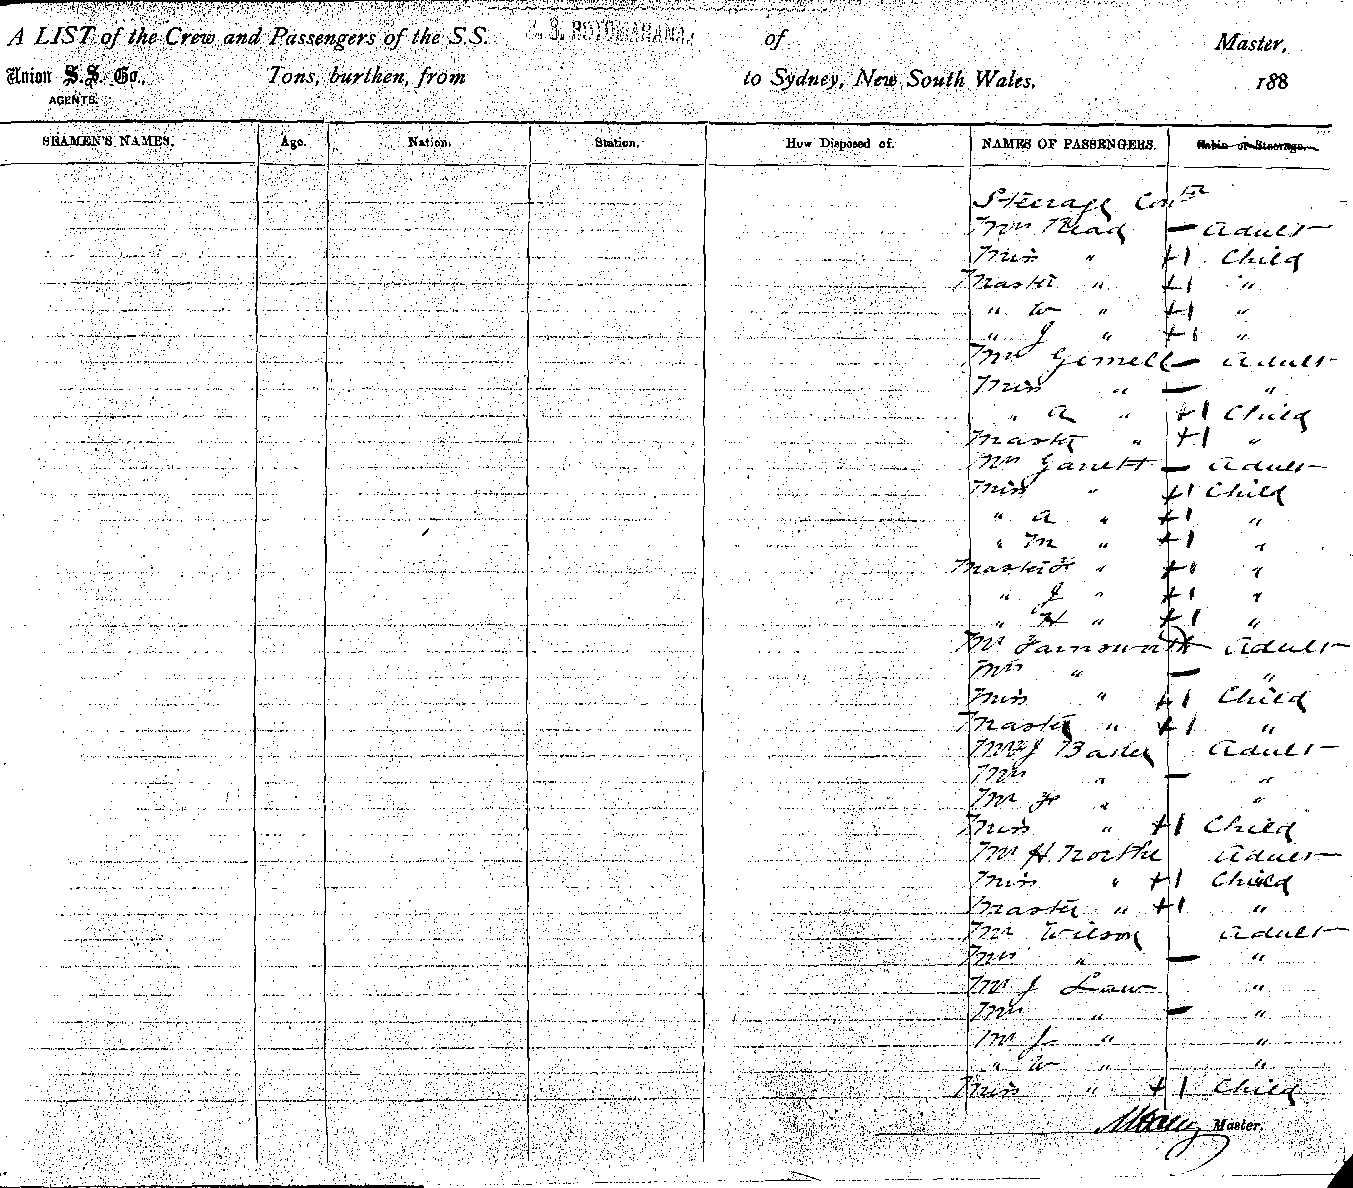 A LIST of the Crew and Passengers of the S.S. S. S. ROTOMAHANA, of Master,
Union S.S. Co., Tons, burthen, from to Sydney, New South Wales. 188
AGENTS.
SEAMEN'S NAMES. Age. Nation. Station. How Disposed of. NAMES OF PASSENGERS. Cabin or Steerage.
Steerage Contd
Mrs Read — Adult
Miss " +1 Child
Master " +1 "
" W " +1 "
" J " +1 "
Mrs Gemell — Adult
Miss " — "
" A " +1 Child
Master " +1 "
Mrs Garrett — Adult
Miss " +1 Child
" A " +1 "
" M " +1 "
Master F " +1 "
" J " +1 "
" H " +1 "
Mr Farnsworth Adult
Mrs " — "
Miss " +1 Child
Master " +1 "
Mr J Adult
Mrs " — "
Mr F " "
Miss " +1 Child
Mr H Northe Adult
Miss " +1 Child
Master " +1 "
Mr Wilson Adult
Mrs " — "
Mr J Law "
Mrs " — "
Mr J " "
" W " "
Miss " +1 Child
Master.